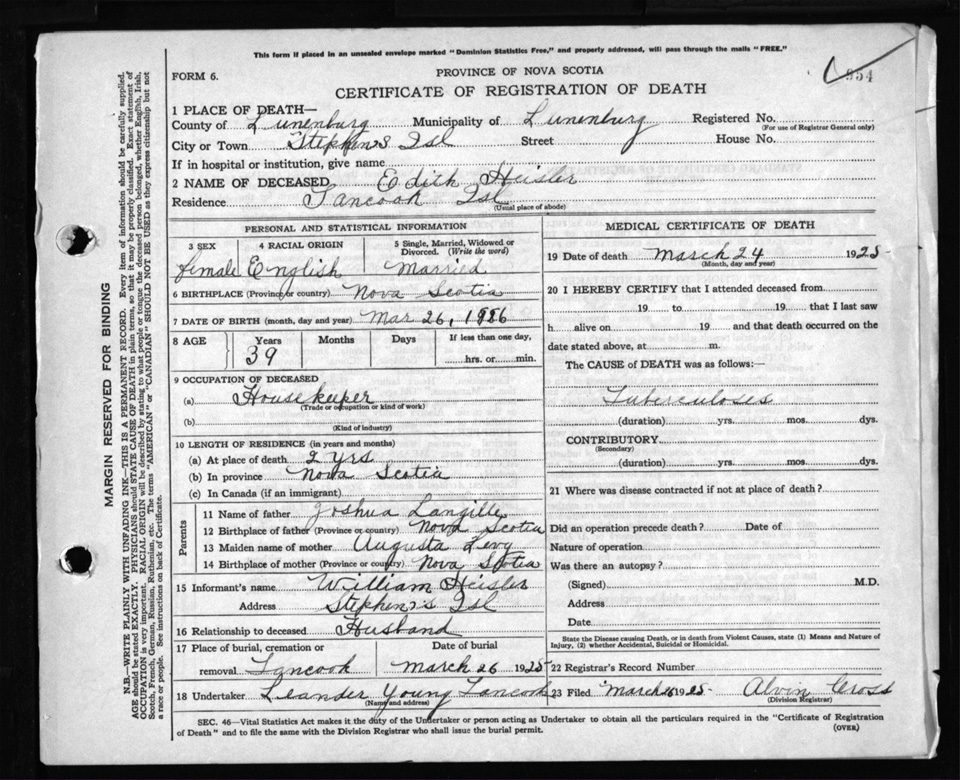 This form if placed in an unsealed envelope marked "Dominion Statistics Free," and properly addressed, will pass through the mails "FREE."
954
FORM 6.
PROVINCE OF NOVA SCOTIA
CERTIFICATE OF REGISTRATION OF DEATH
1 PLACE OF DEATH—
County of Lunenburg Municipality of Lunenburg Registered No.
(For use of Registrar General only)
City or Town Stephen's Isl Street House No.
If in hospital or institution, give name
2 NAME OF DECEASED Edith Heisler
Residence Tancook Isl
(Usual place of abode)
PERSONAL AND STATISTICAL INFORMATION
3 SEX 4 RACIAL ORIGIN 5 Single, Married, Widowed or Divorced. (Write the word)
female English Married
6 BIRTHPLACE (Province or country) Nova Scotia
7 DATE OF BIRTH (month, day and year) Mar 26, 1886
8 AGE Years Months Days If less than one day,
39 hrs. or min.
9 OCCUPATION OF DECEASED
(a) Housekeeper
(Trade or occupation or kind of work)
(b)
(Kind of industry)
10 LENGTH OF RESIDENCE (in years and months)
(a) At place of death 2 yrs
(b) In province Nova Scotia
(c) In Canada (if an immigrant)
Parents
11 Name of father Joshua Langille
12 Birthplace of father (Province or country) Nova Scotia
13 Maiden name of mother Augusta Levy
14 Birthplace of mother (Province or country) Nova Scotia
15 Informant's name William Heisler
Address Stephen's Isl
16 Relationship to deceased Husband
17 Place of burial, cremation or Date of burial
removal Tancook March 26 1925
18 Undertaker Leander Young Tancook
(Name and address)
MEDICAL CERTIFICATE OF DEATH
19 Date of death March 24 1925
(Month, day and year)
20 I HEREBY CERTIFY that I attended deceased from
19 to 19 that I last saw
h alive on 19 and that death occurred on the
date stated above, at m.
The CAUSE of DEATH was as follows:
Tuberculoses
(duration) yrs. mos. dys.
CONTRIBUTORY
(Secondary)
(duration) yrs. mos. dys.
21 Where was disease contracted if not at place of death?
Did an operation precede death? Date of
Nature of operation
Was there an autopsy?
(Signed) M.D.
Address
Date
State the Disease causing Death, or in death from Violent Causes, state (1) Means and Nature of
Injury, (2) whether Accidental, Suicidal or Homicidal.
22 Registrar's Record Number
23 Filed March 1925 Alvin Cross
(Division Registrar)
SEC. 46—Vital Statistics Act makes it the duty of the Undertaker or person acting as Undertaker to obtain all the particulars required in the "Certificate of Registration
of Death" and to file the same with the Division Registrar who shall issue the burial permit.
(OVER)
MARGIN RESERVED FOR BINDING
N.B.—WRITE PLAINLY WITH UNFADING INK—THIS IS A PERMANENT RECORD. Every item of information should be carefully supplied.
AGE should be stated EXACTLY. PHYSICIANS should STATE CAUSE OF DEATH in plain terms, so that it may be properly classified. Exact statement of
OCCUPATION is very important. RACIAL ORIGIN will be described by stating to what people or tongue the deceased person belonged, whether English, Irish,
Scotch, French, German, Russian, Ruthenian, etc. The terms "AMERICAN" or "CANADIAN" SHOULD NOT BE USED as they express citizenship but not
a race or people. See instructions on back of Certificate.